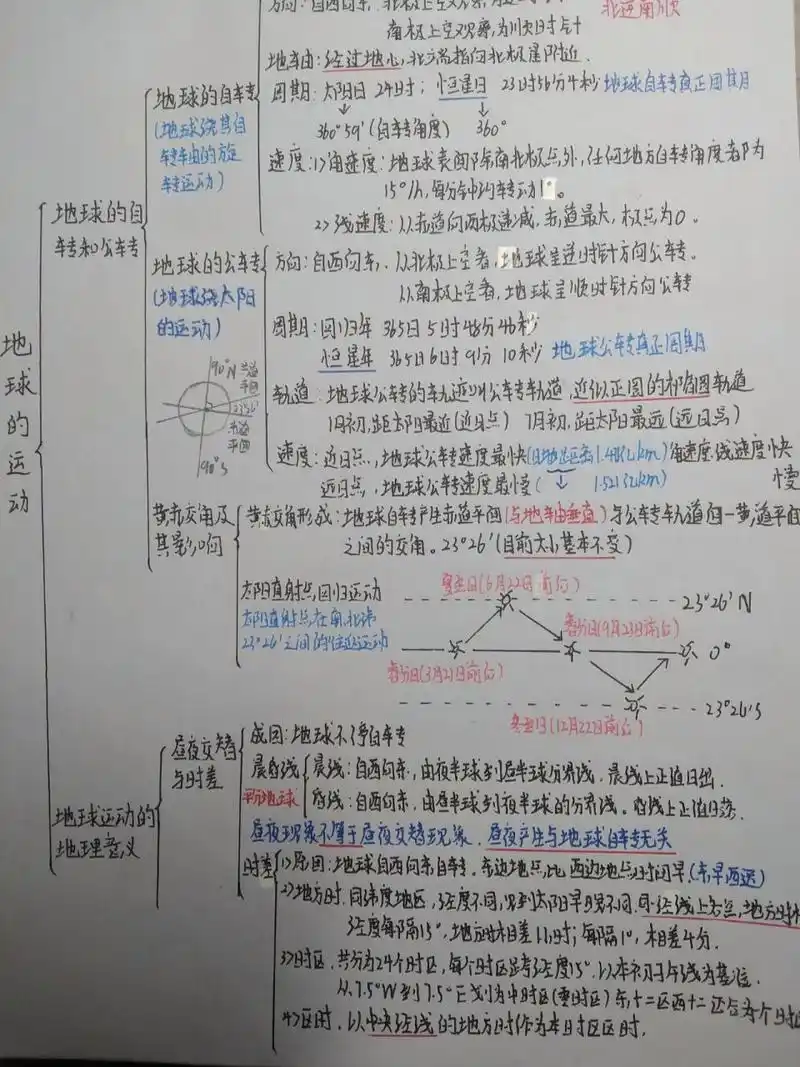 方向：自西向东．北极上空观察，
北逆南顺
南极上空观察，为顺时针
地轴：经过地心，北端指向北极星附近．
地球的自转
(地球绕其自
转轴的旋
转运动)
周期：太阳日 24时； 恒星日 23时56分4秒 地球自转真正周期
360°59′(自转角度) 360°
速度：1>角速度：地球表面除南北极点外，任何地方自转角度都为
15°/h，每分钟约转动1°。
2>线速度：从赤道向两极递减，赤道最大，极点为0。
地球的自
转和公转
地球的公转
(地球绕太阳
的运动)
方向：自西向东．从北极上空看，地球呈逆时针方向公转。
从南极上空看，地球呈顺时针方向公转
周期：回归年 365日5时48分46秒
恒星年 365日6时9分10秒 地球公转真正周期
90°N
黄道
平面
23°26′
赤道
平面
90°S
轨道：地球公转的轨迹叫公转轨道，近似正圆的椭圆轨道
1月初，距太阳最近(近日点) 7月初，距太阳最远(远日点)
速度：近日点，地球公转速度最快(日地距离1.48亿km)角速度．线速度快
近日点，地球公转速度最慢(↓ 1.52亿km) 慢
地球的运动
黄赤交角及
其影响
黄赤交角形成：地球自转产生赤道平面(与地轴垂直)与公转轨道面一黄道平面
之间的交角。23°26′(目前大小基本不变)
太阳直射点，回归运动
太阳直射点，在南．北纬
23°26′之间的往返运动
夏至日(6月22日前后)
23°26′N
春分日(9月23日前后)
0°
春分日(3月21日前后)
23°26′S
冬至日(12月22日前后)
地球运动的
地理意义
昼夜交替
与时差
成因：地球不停自转
晨昏线
平分地球
晨线：自西向东，由夜半球到昼半球分界线．晨线上正值日出．
昏线：自西向东，由昼半球到夜半球的分界线。昏线上正值日落．
昼夜现象不等于昼夜交替现象．昼夜产生与地球自转无关
时差
1>原因：地球自西向东自转．东边地点，比西边地点时间早．(东早西迟)
2>地方时．同纬度地区，经度不同，见到太阳早晚不同．同一经线上各点，地方时
经度每隔15°，地方时相差1小时；每隔1°，相差4分．
3>时区．共分为24个时区，每个时区跨经度15°．以本初子午线为基准．
从7.5°W到7.5°E划为中时区(零时区)东十二区西十二
4>区时．以中央经线的地方时作为本时区区时．